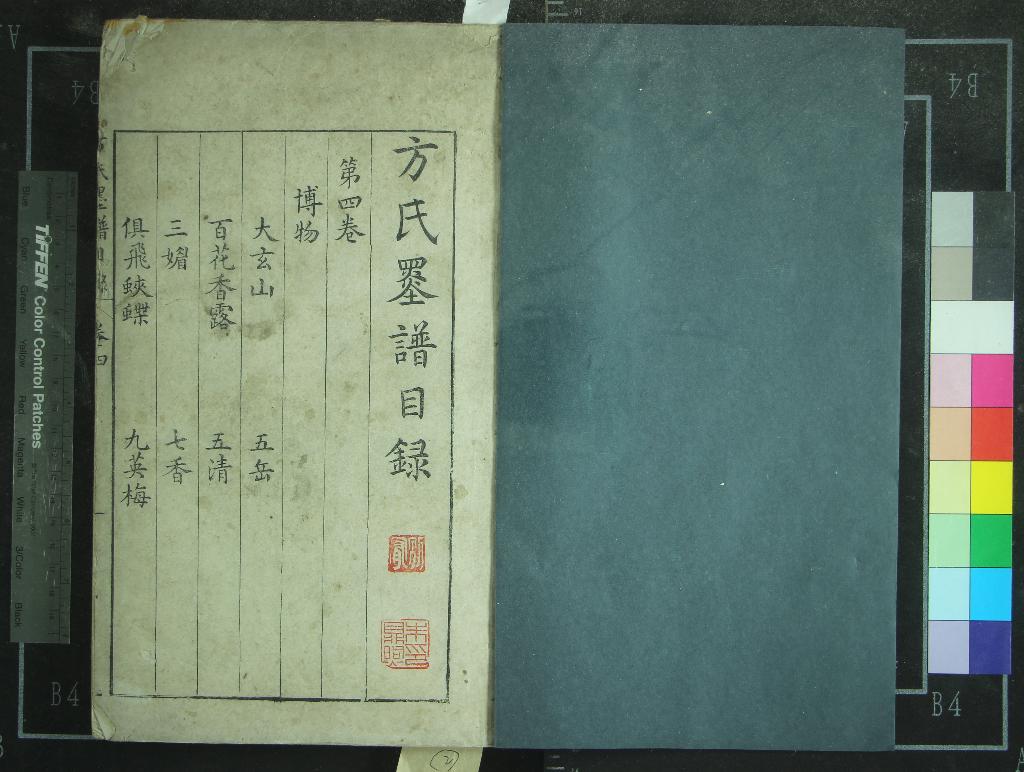 方氏墨譜目録
第四卷
博物
大玄山 五岳
百花香露 五清
三媚 七香
俱飛蛺蝶 九英梅
方氏墨譜目録 卷四
TIFFEN Color Control Patches
Blue Cyan Green Yellow Red Magenta White 3/Color Black
B4
B4
B4
B4
A
A
2